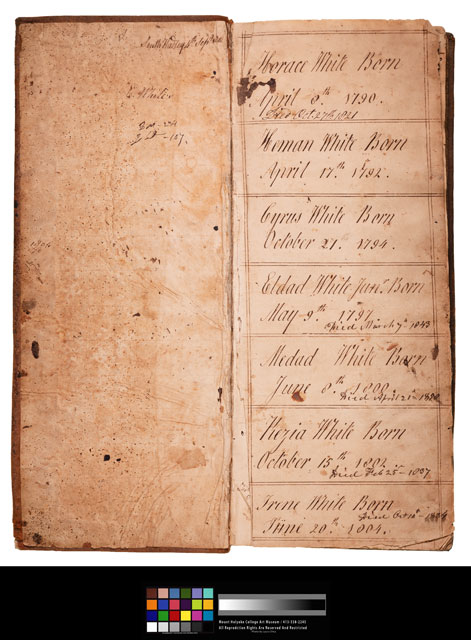 White.
Horace White Born
April 8th 1790.
Died Oct. 27th 1821
Heman White Born
April 17th 1792.
Cyrus White Born
October 21. 1794.
Eldad White Junr. Born
May 9th 1797
Died March 7th 1843
Medad White Born
June 8th 1800.
Died April 21st
Kezia White Born
October 15th 1802
Died Feb 25th 1837
Irene White Born
Died Oct
June 20th 1804.
Mount Holyoke College Art Museum / 413-538-2245
All Reproduction Rights Are Reserved And Restricted